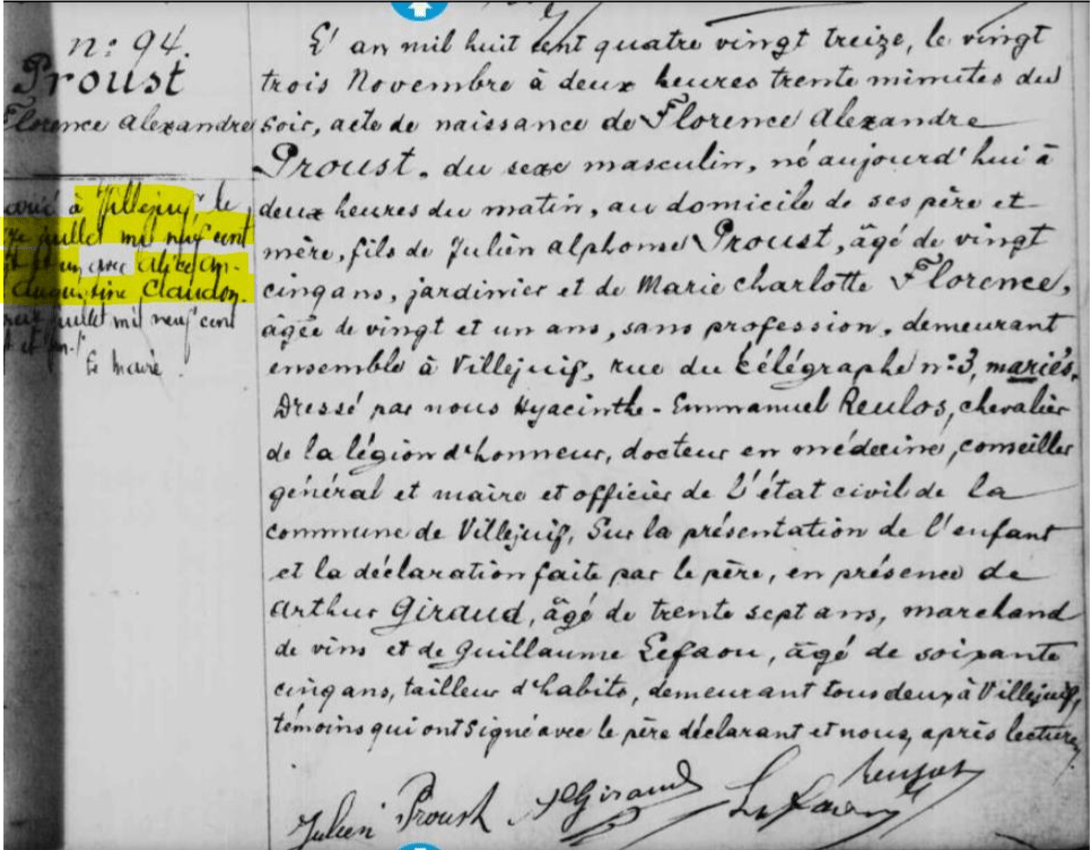 n: 94.
Proust
Florence Alexandre
à Villejuif, le
juillet mil neuf cent
et un avec Alice
Augustine Claudon.
juillet mil neuf cent
et un.
Le maire
L'an mil huit cent quatre vingt treize, le vingt
trois Novembre à deux heures trente minutes du
soir, acte de naissance de Florence Alexandre
Proust, du sexe masculin, né aujourd'hui à
deux heures du matin, au domicile de ses père et
mère, fils de Julien Alphonse Proust, âgé de vingt
cinq ans, jardinier et de Marie Charlotte Florence,
âgée de vingt et un ans, sans profession, demeurant
ensemble à Villejuif, rue du télégraphe n:3, mariés.
Dressé par nous Hyacinthe-Emmanuel Reulos, chevalier
de la légion d'honneur, docteur en médecine, conseiller
général et maire et officier de l'état civil de la
commune de Villejuif, Sur la présentation de l'enfant
et la déclaration faite par le père, en présence de
Arthur Giraud, âgé de trente sept ans, marchand
de vins et de Guillaume Lefaou, âgé de soixante
cinq ans, tailleur d'habits, demeurant tous deux à Villejuif,
témoins qui ont signé avec le père déclarant et nous, après lecture,
Julien Proust A Giraud Lefaou Reulos